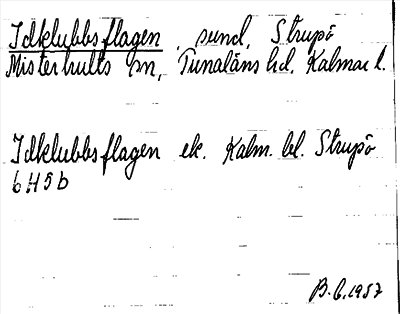 Idklubbsflagen, sund, Strupö
Misterhults sn, Tunaläns hd. Kalmar l.
Idklubbsflagen ek. Kalm. bl. Strupö
6H5b
B.G.1957